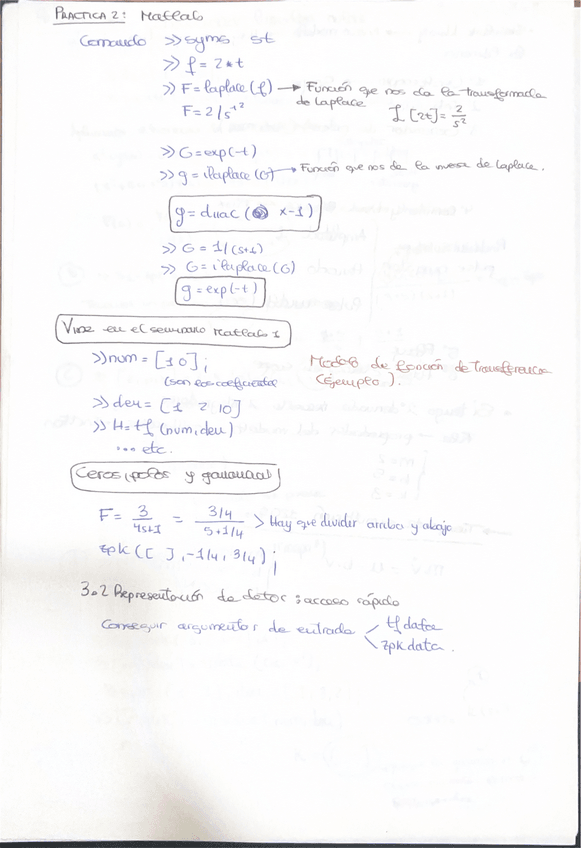 PRACTICA 2: Matlab
Comando >>syms s t
>> f = 2*t
>> F = laplace (f) → Función que nos da la transformada de Laplace L [2t] = 2/s²
F = 2/s^2
>> G = exp(-t)
>> g = ilaplace (G) → Función que nos de la inversa de Laplace.
g = dirac ( x-1)
>> G = 1/(s+1)
>> G = ilaplace (G)
g = exp(-t)
Viene en el seminario Matlab 1
>> num = [1 0]; Modelo de función de Transferencia
(son los coeficientes (ejemplo).
>> den = [1 2 10]
>> H = tf (num, den)
... etc.
Ceros, polos y ganancia
F = 3/4s+1 = 3/4 / s+1/4 > Hay que dividir arriba y abajo
zpk ([ ], -1/4, 3/4);
3.2 Representación de datos: acceso rápido
Conseguir argumentos de entrada < tf data
zpk data.